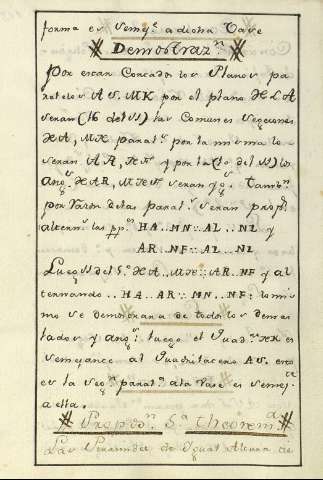 forma es semej.te a dicha Vase
Demostraz.n
Por estan Concados los Planos pa
ralelos AS. MK por el plano HLA
seran (16 del 11) las Comunes Secciones
HA, MN paral.s por la misma lo
seran AR, NF y por la (10 del 11) los
Ang.s HAR, MNF seran yg.s Tamb.n
por razon de las paral.s seran prop.s
altern.s las pp.s HA..MN::AL..NL y
AR..NF::AL..NL
Luego 11 del 5.º HA..MN::AR..NF y al
ternando..HA..AR::MN..NF: lo mis
mo se demostrara de todos los demas
lados y ang.s luego el Quad.o NK es
semejante al Quadrilatero AS. esto
es la Sec.n paral.a a la Vase es semej.te
a ella.
Propos.n 5.a Theorem.a
Las Piramides de Igual Altura de